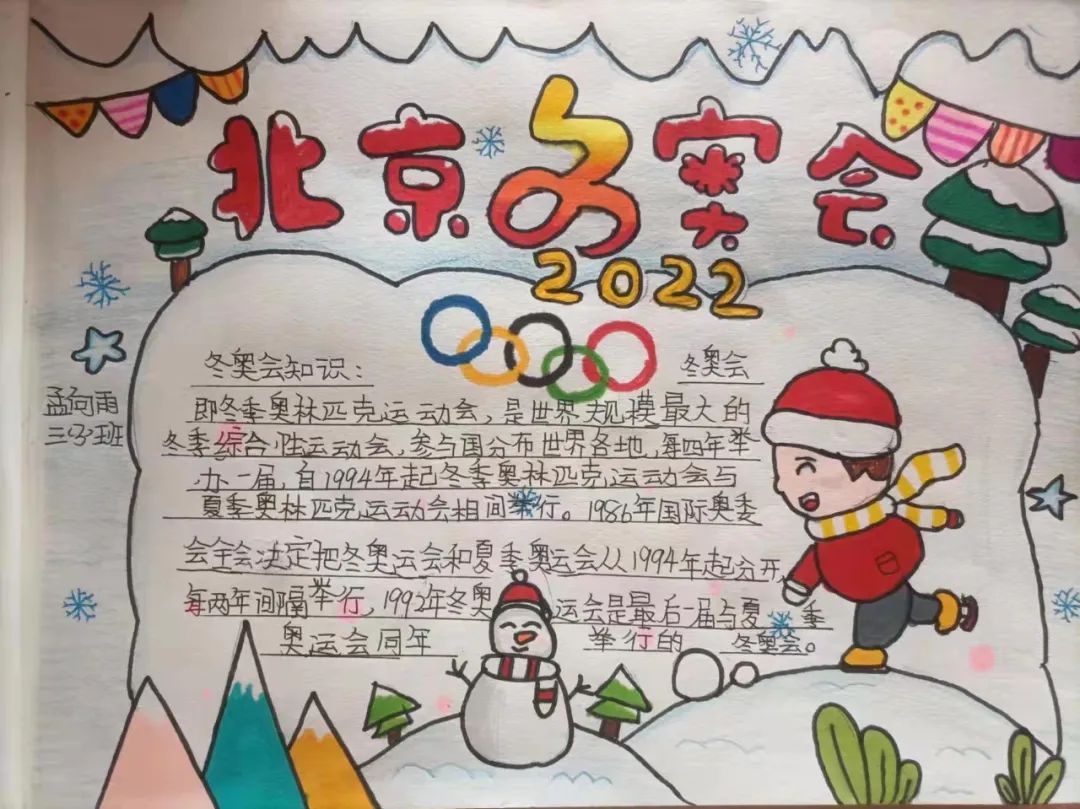 北京冬奥会
2022
冬奥会知识：
冬奥会
即冬季奥林匹克运动会，是世界规模最大的
冬季综合性运动会，参与国分布世界各地，每四年举
办一届，自1994年起冬季奥林匹克运动会与
夏季奥林匹克运动会相间举行。1986年国际奥委
会全会决定把冬奥运会和夏季奥运会从1994年起分开，
每两年间隔举行，1992年冬奥运会是最后一届与夏季
奥运会同年举行的冬奥会。
孟向雨
三（3）班